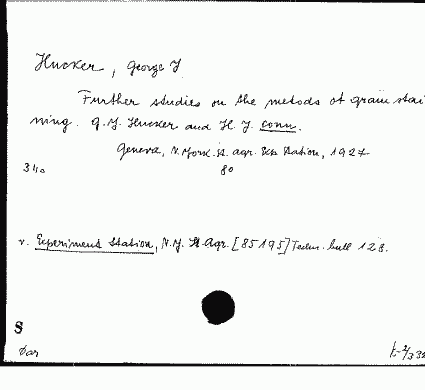 Hucker, George J.
Further studies on the metods of gram stai
ning. G.J. Hucker and H.J. Conn.
Geneva, N.York. st. agr. Exp. Station, 1927
34o 8o
v. Experiment Station, N.Y. St. Agr. [85195] Techn. bull 128.
S